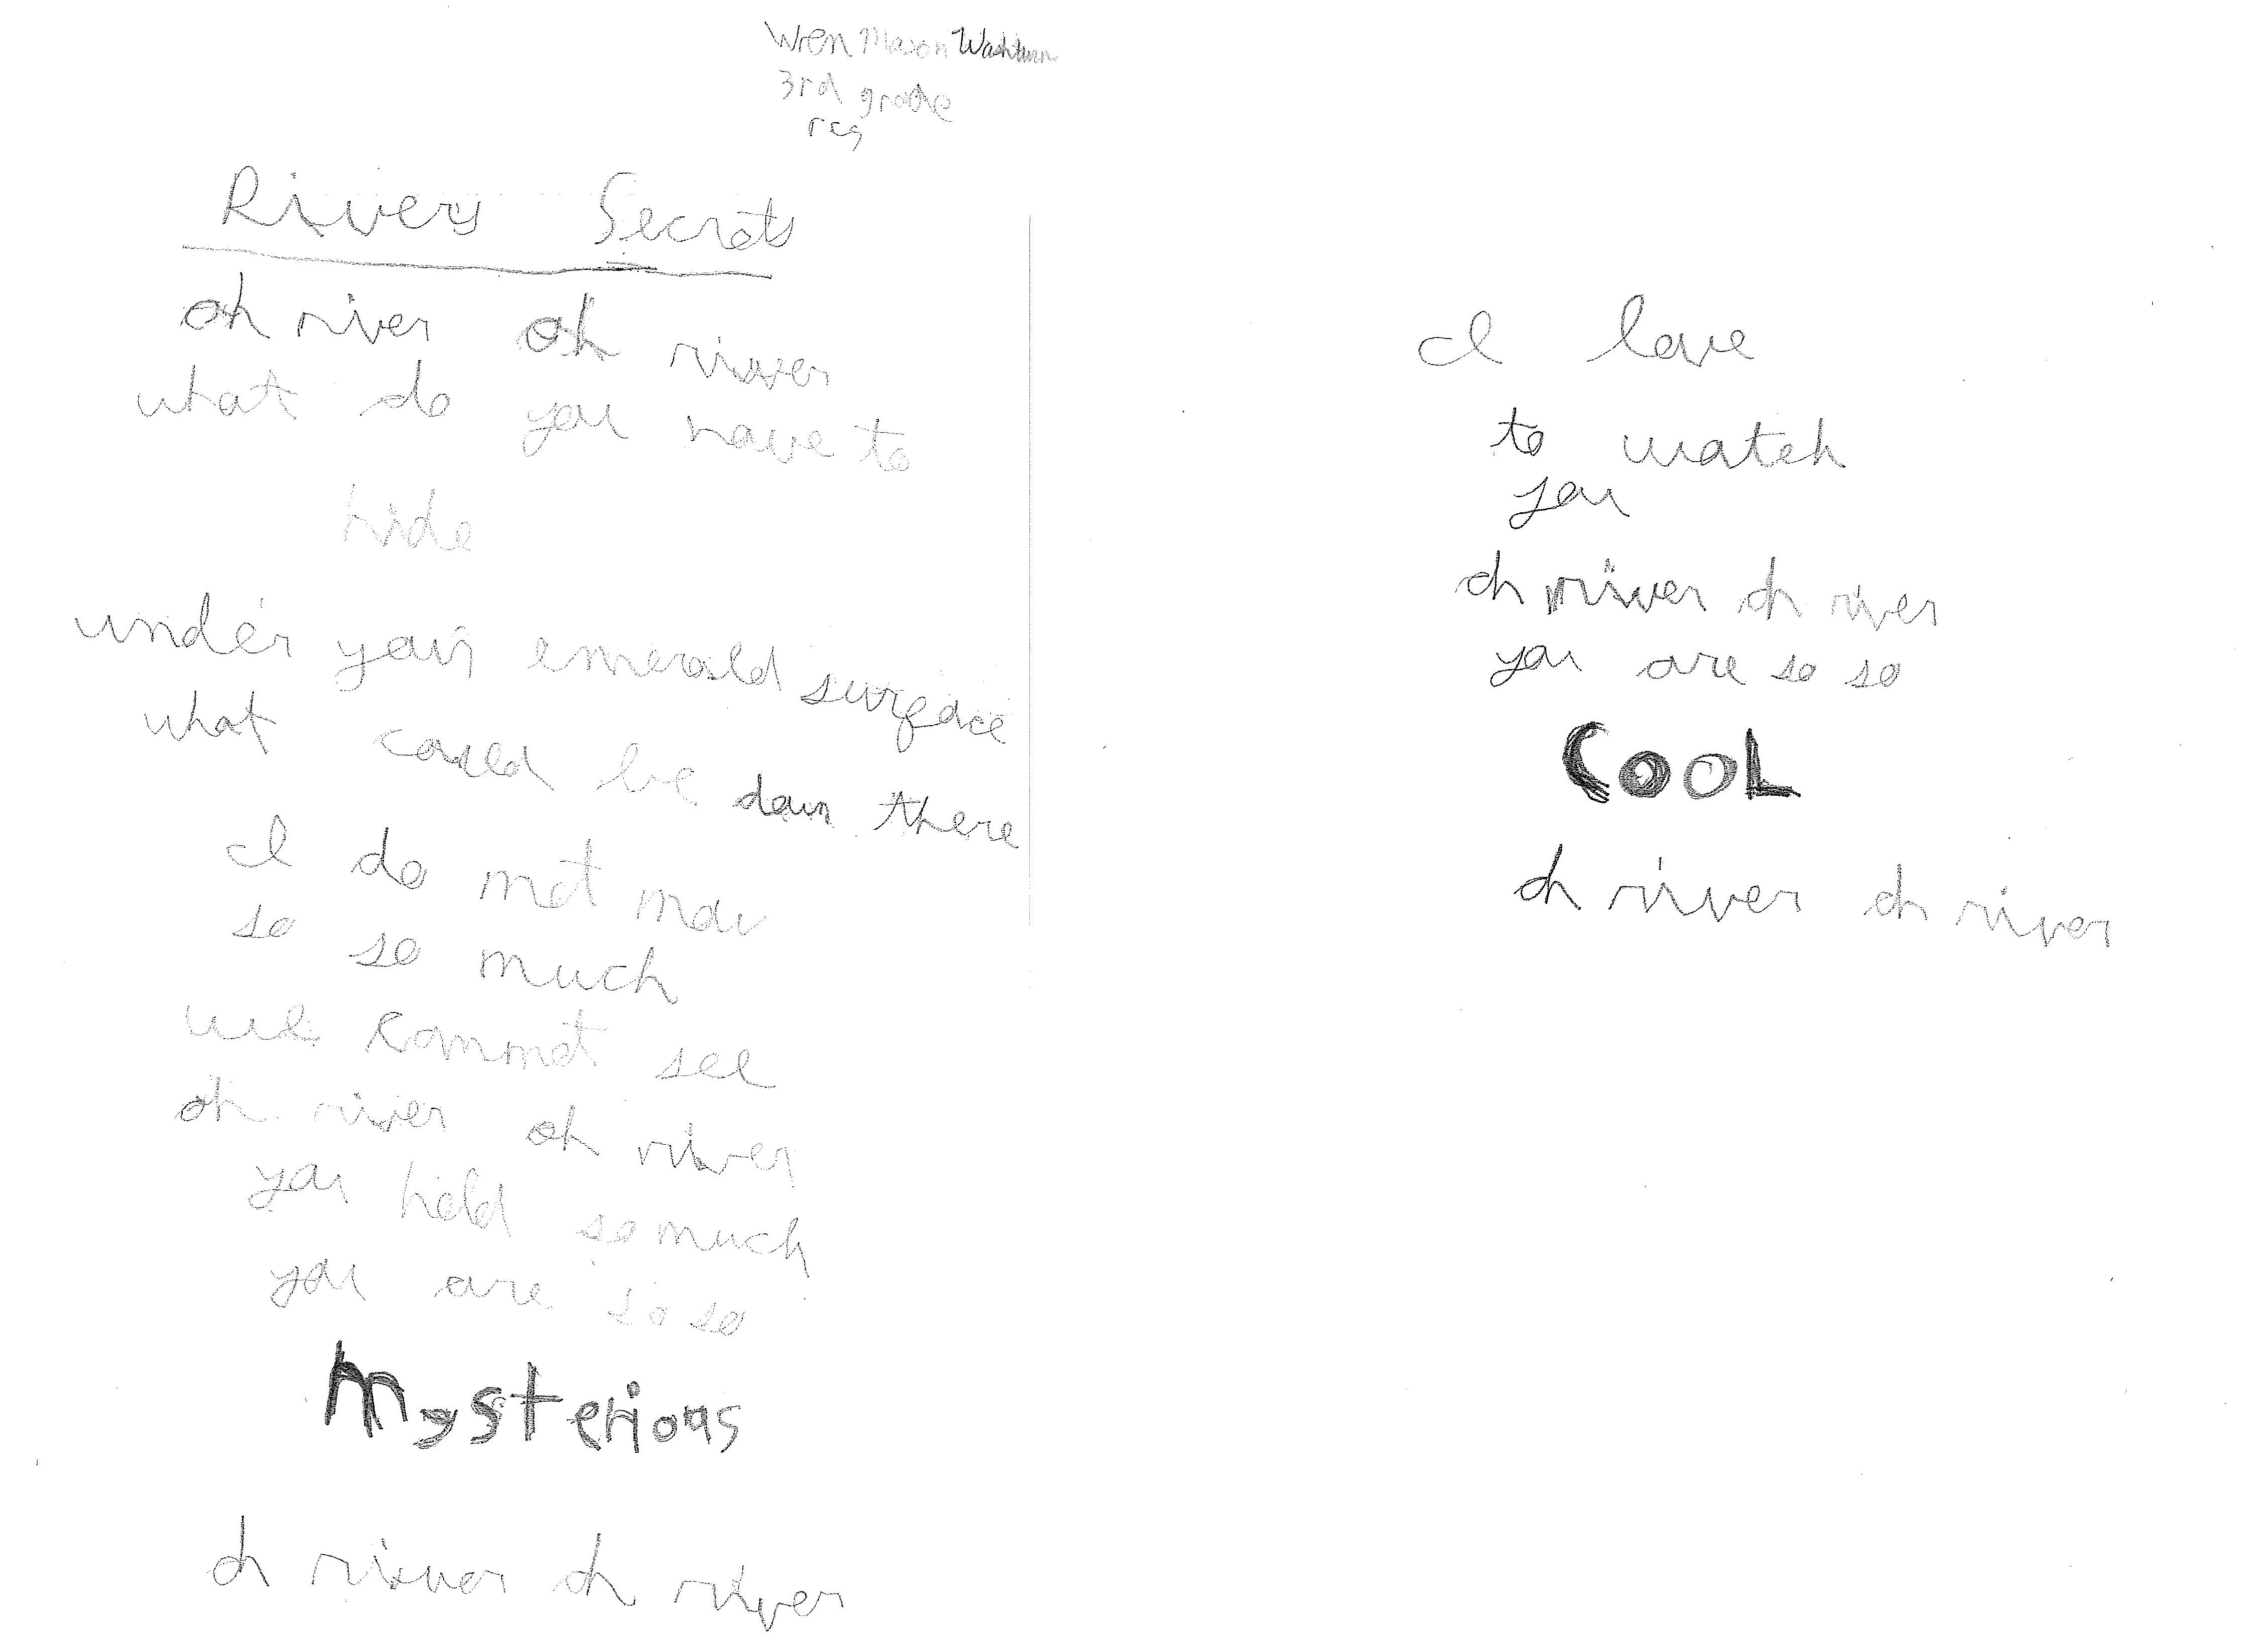 Wren Mason Washburn
3rd grade
rcs
Rivers Secrets
oh river oh river
what do you have to
hide
under your emerald surface
what could be down there
I do not
so so much
we cannot see
oh river oh river
you hold so much
you are so so
Mysterious
oh river oh river
I love
to watch
you
oh river oh river
you are so so
COOL
oh river oh river